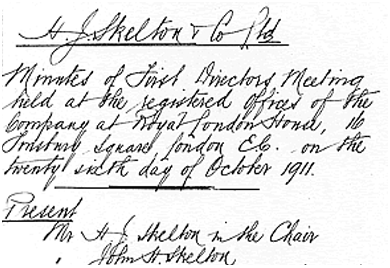 H. J. Skelton & Co Ltd
Minutes of First Directors Meeting
held at the registered offices of the
Company at Royal London House, 16
Finsbury Square, London E.C. on the
twenty sixth day of October 1911.
Present
Mr H J Skelton in the Chair
John H. Skelton